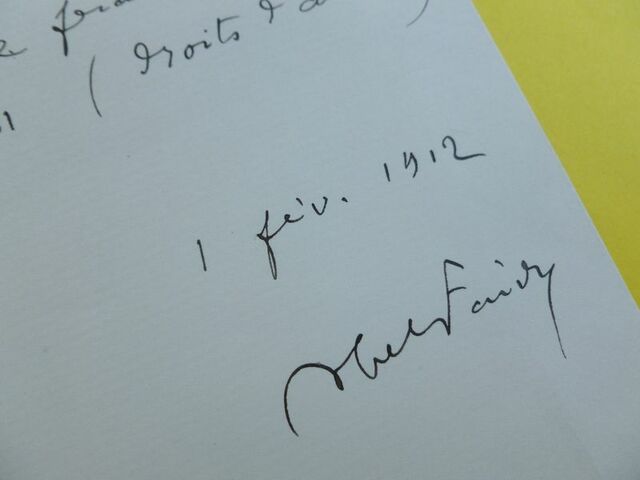 ( droits d'a )
1 fév. 1912
Abel Faivre